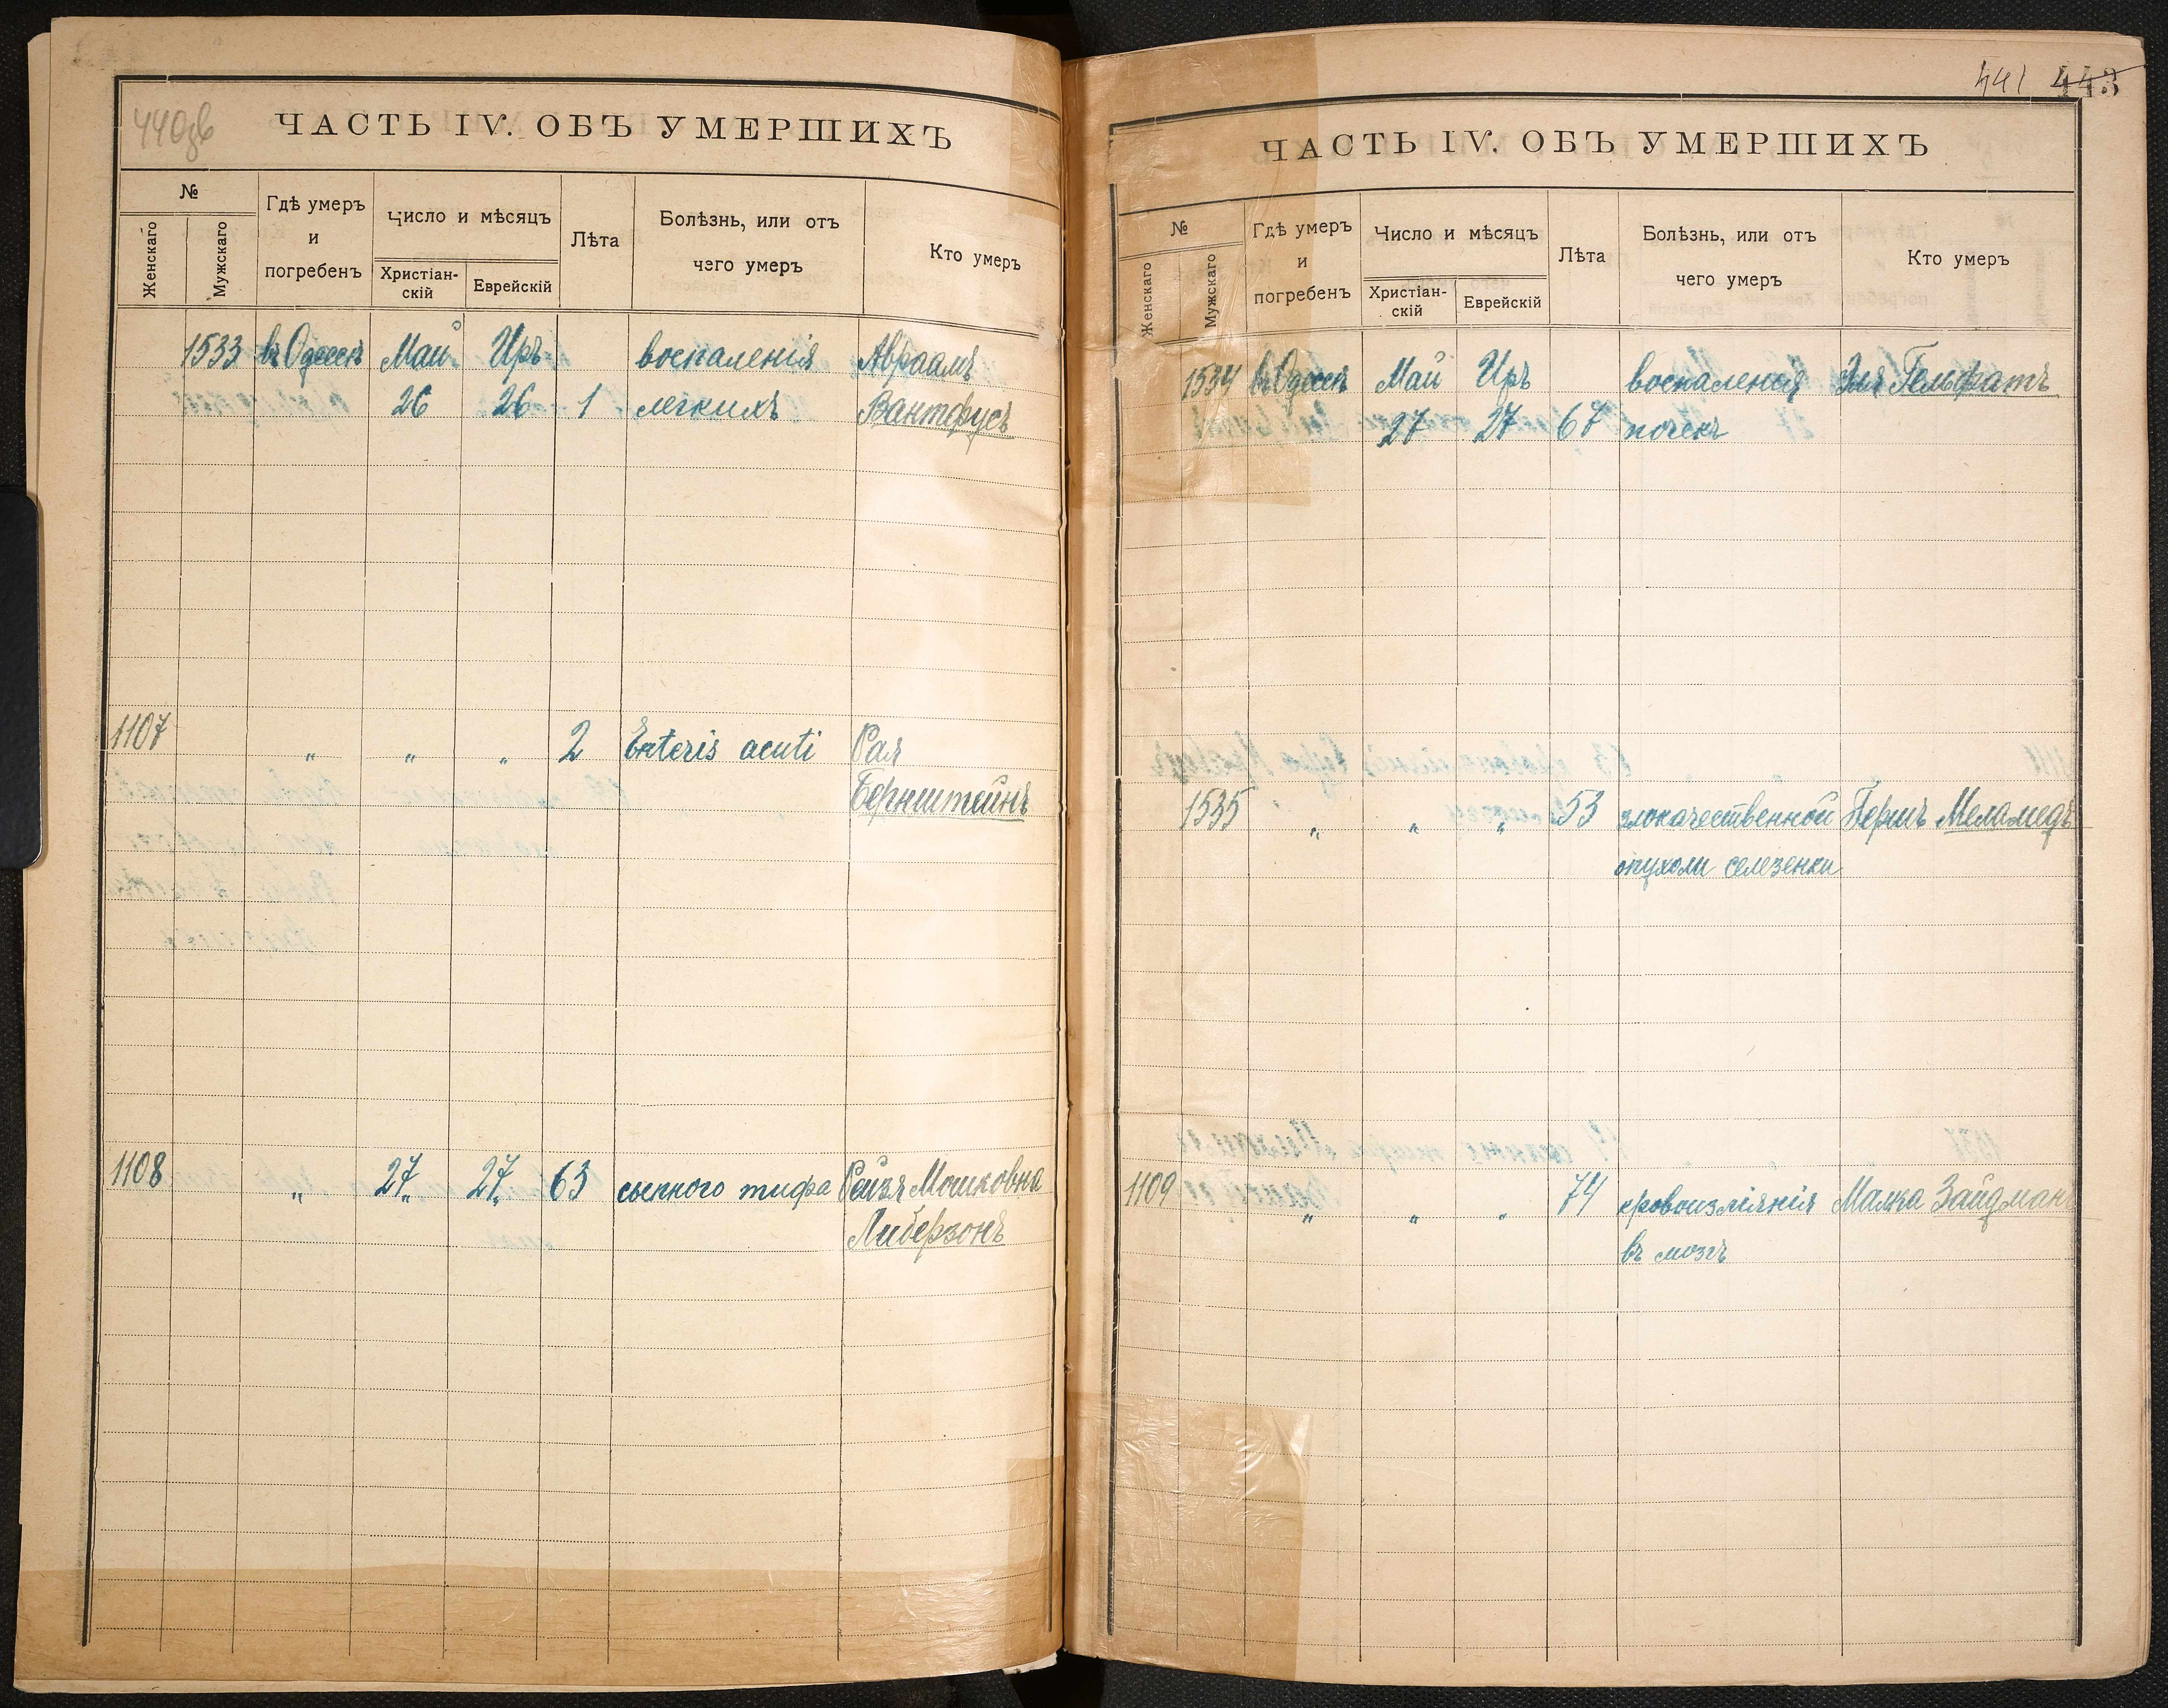 440зв
ЧАСТЬ IV. ОБЪ УМЕРШИХЪ
№
Женскаго
Мужскаго
Гдѣ умеръ
и
погребенъ
Число и мѣсяцъ
Христіан-
скій
Еврейскій
Лѣта
Болѣзнь, или отъ
чего умеръ
Кто умеръ
1533 въ Одессѣ Май Иръ воспаленія Авраамъ
26 26 1 легкихъ Вантфусъ
1107 " " " 2 Enteris acuti Рая
Бернштейнъ
1108 " 27 27 63 сыпного тифа Рейзя Мошковна
Либерзонъ
441 443
ЧАСТЬ IV. ОБЪ УМЕРШИХЪ
№
Женскаго
Мужскаго
Гдѣ умеръ
и
погребенъ
Число и мѣсяцъ
Христіан-
скій
Еврейскій
Лѣта
Болѣзнь, или отъ
чего умеръ
Кто умеръ
1534 въ Одессѣ Май Иръ воспаленія Эля Гельфатъ
27 27 67 почекъ
1535 " " " 53 злокачественной Гершъ Меламедъ
опухоли селезенки
1109 " " " 74 кровоизліянія Малка Зайдманъ
въ мозгъ